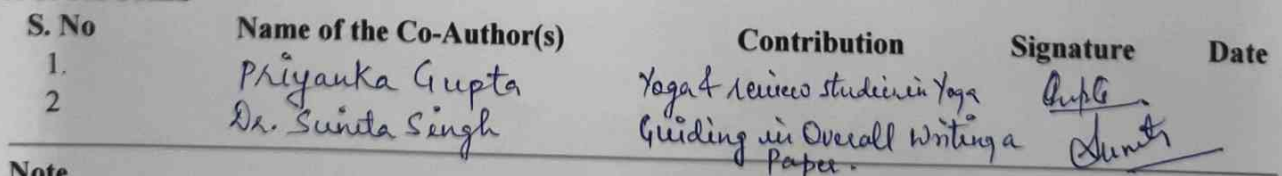 S. No Name of the Co-Author(s) Contribution Signature Date
1. Priyanka Gupta Yoga & review studies in Yoga Gupta
2 Dr. Sunita Singh Guiding in Overall Writing a Paper. Sunita
Note